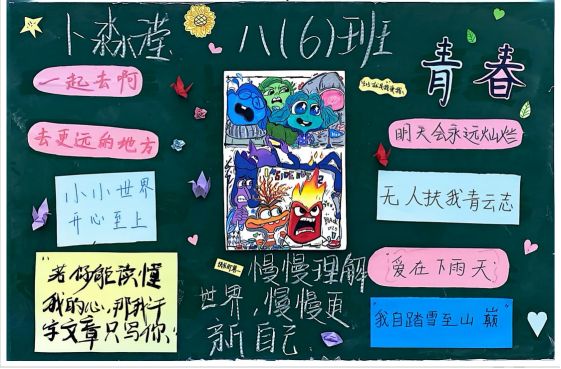 卜淼滢
八(6)班
青春
一起去啊
去更远的地方
小小世界
开心至上
"若你能读懂
我的心,那我千
字文章只写你"
INSIDE OUT
慢慢理解
世界,慢慢更
新自己
明天会永远灿烂
无人扶我青云志
爱在下雨天
我自踏雪至山巅